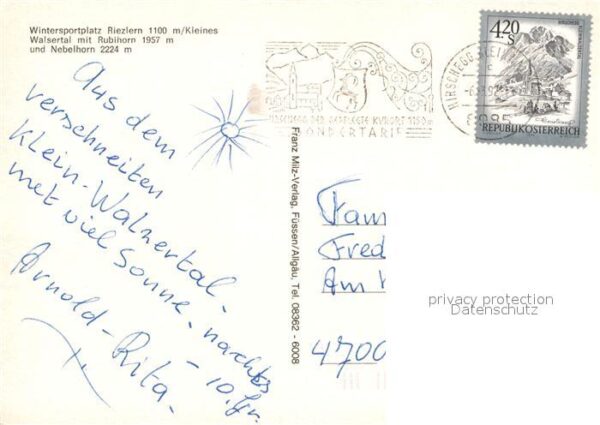 Wintersportplatz Riezlern 1100 m/Kleines
Walsertal mit Rubihorn 1957 m
und Nebelhorn 2224 m
Aus dem
verschneiten
Klein-Walzertal -
met viel Sonne - nachts
- 10. Gr.
Arnold - Rita -
Franz Milz-Verlag, Füssen/Allgäu, Tel. 08362 - 6008
HIRSCHEGG, DER GEPFLEGTE KURORT 1150m
SONDERTARIF
HIRSCHEGG, KLEIN
4.20
S
REPUBLIK ÖSTERREICH
Fam
Fred
Am
4700
privacy protection
Datenschutz